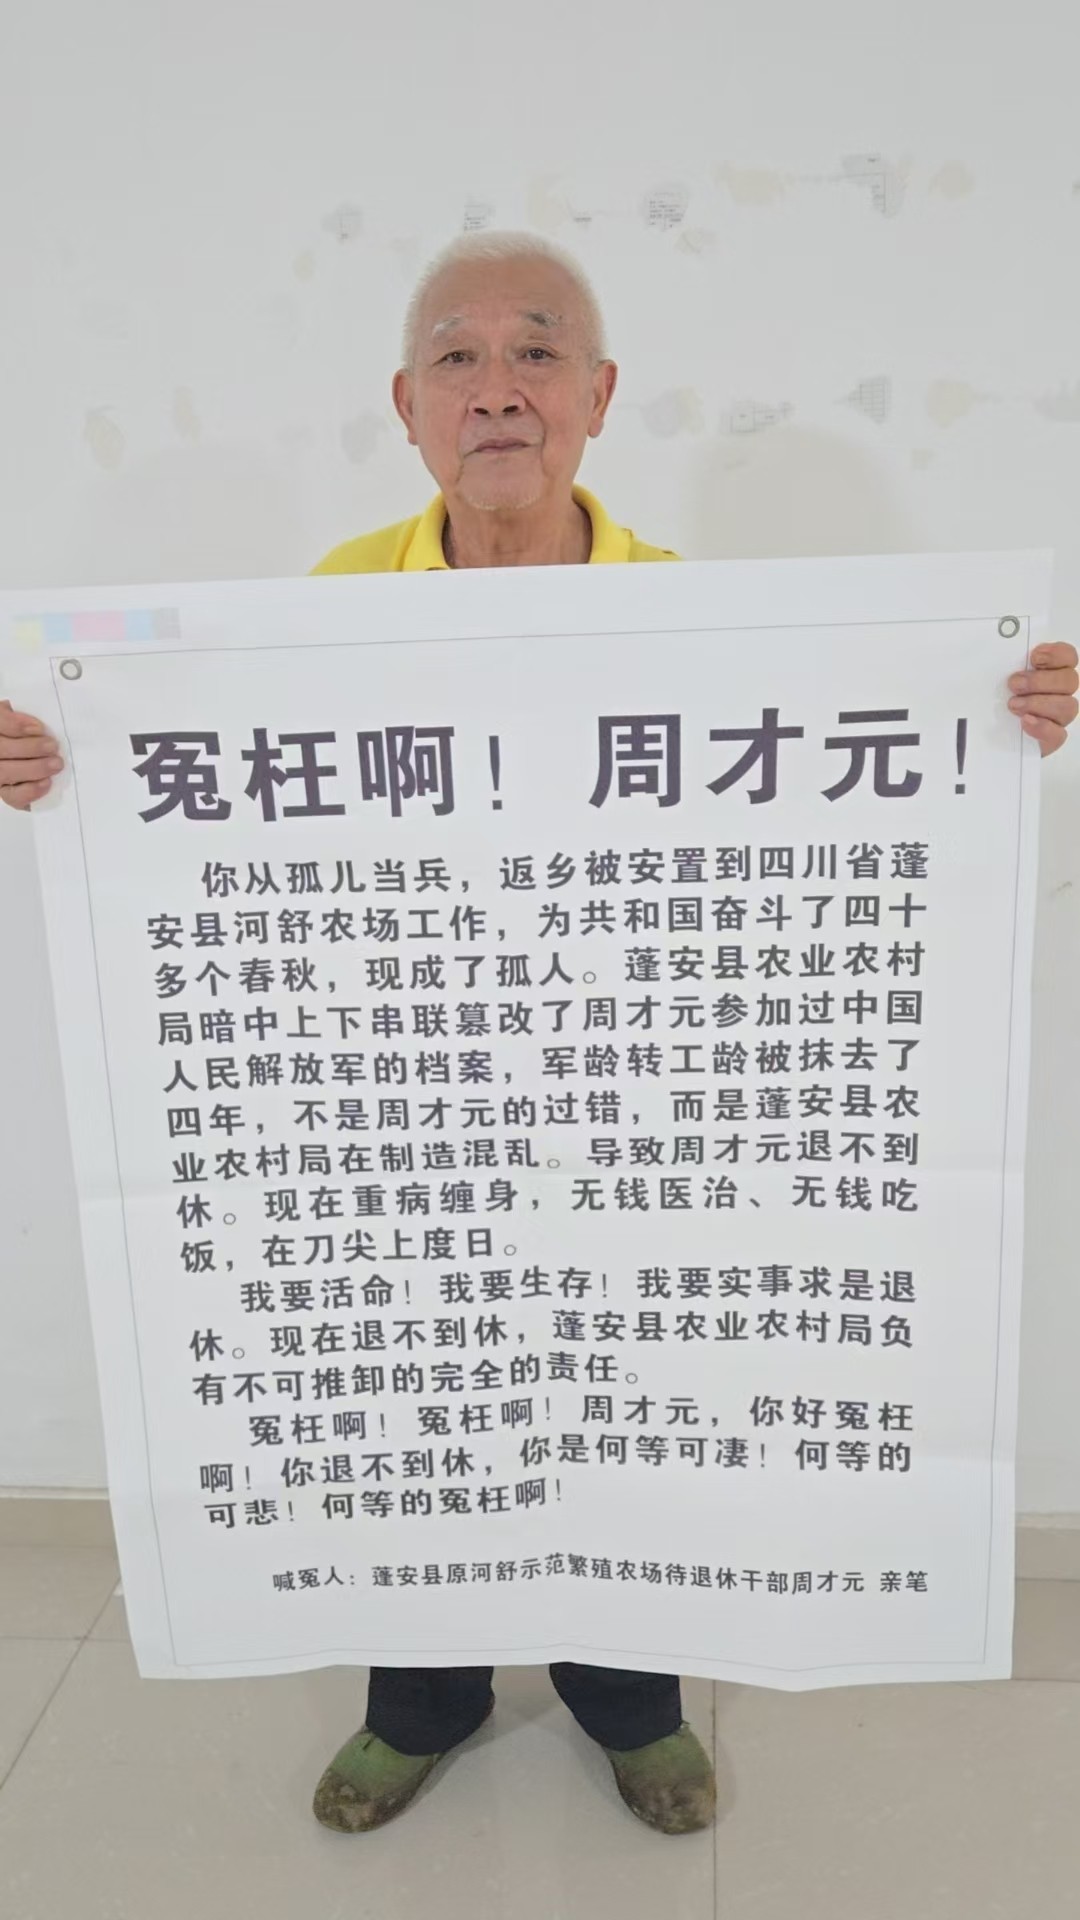 冤枉啊！ 周才元！
你从孤儿当兵，返乡被安置到四川省蓬
安县河舒农场工作，为共和国奋斗了四十
多个春秋，现成了孤人。蓬安县农业农村
局暗中上下串联篡改了周才元参加过中国
人民解放军的档案，军龄转工龄被抹去了
四年，不是周才元的过错，而是蓬安县农
业农村局在制造混乱。导致周才元退不到
休。现在重病缠身，无钱医治、无钱吃
饭，在刀尖上度日。
我要活命！我要生存！我要实事求是退
休。现在退不到休，蓬安县农业农村局负
有不可推卸的完全的责任。
冤枉啊！冤枉啊！周才元，你好冤枉
啊！你退不到休，你是何等可凄！何等的
可悲！何等的冤枉啊！
喊冤人：蓬安县原河舒示范繁殖农场待退休干部周才元 亲笔